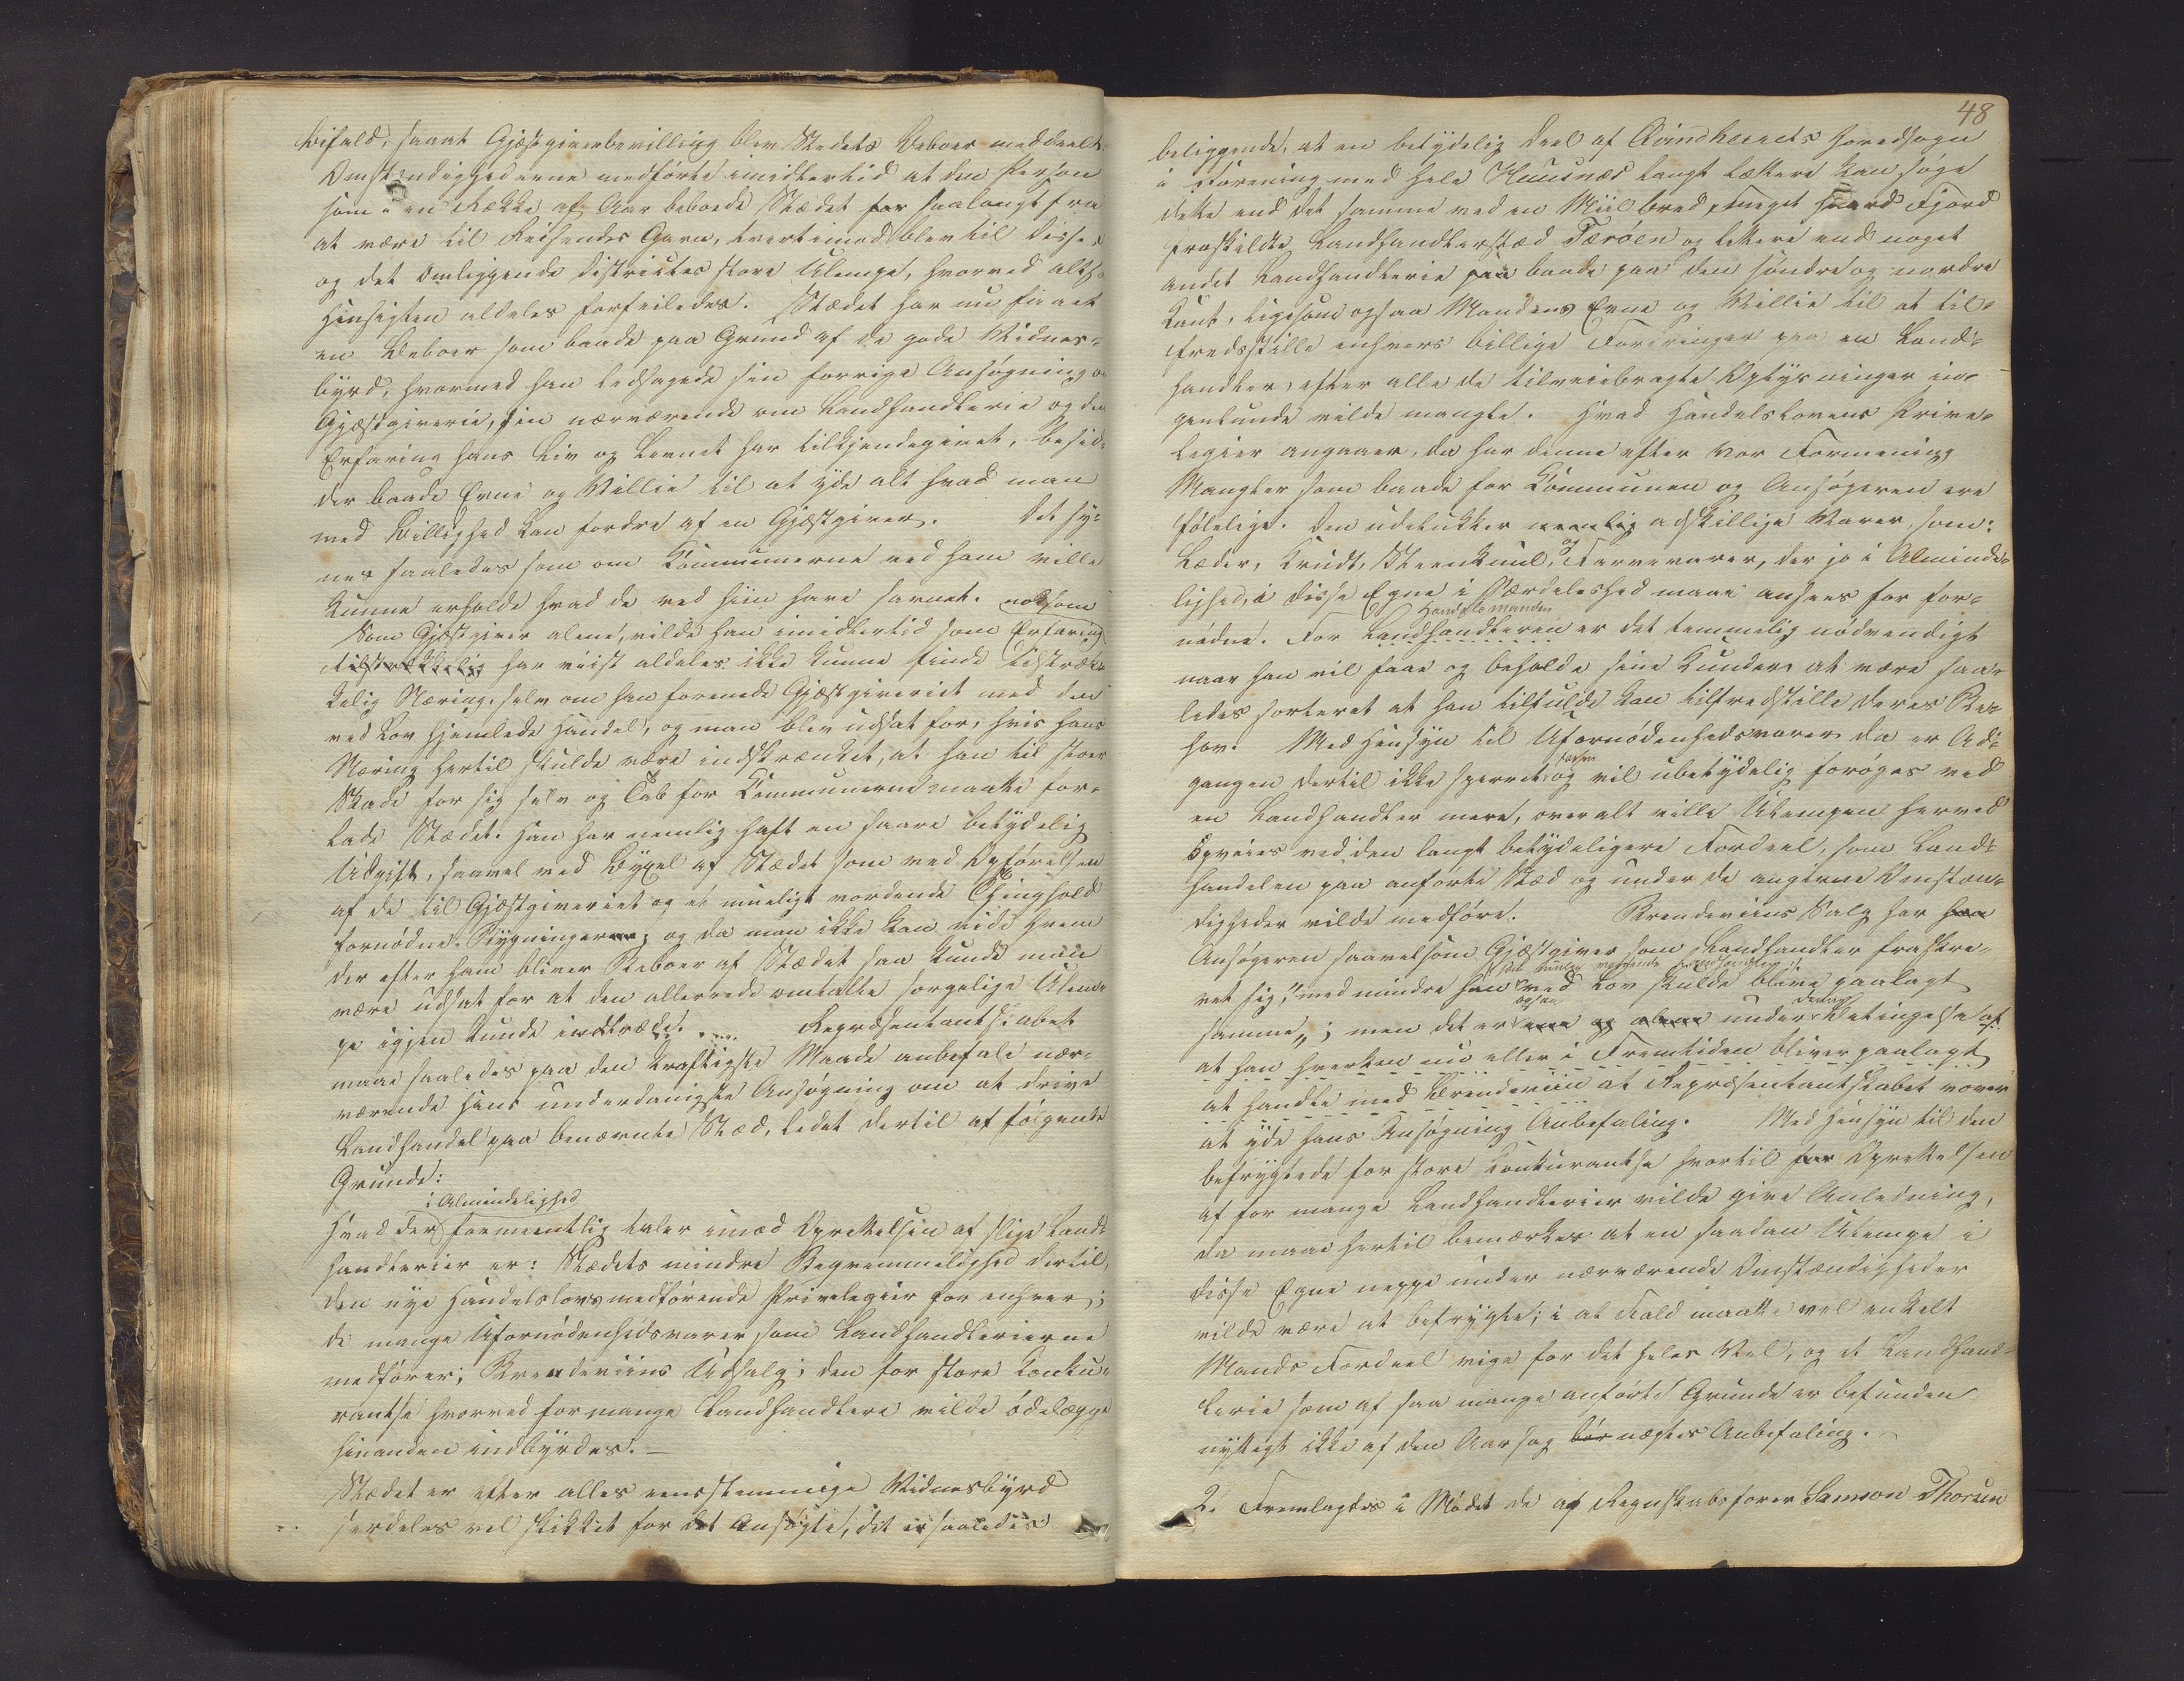 bifald, saaat Gjæstgiverbevilling blev Stedets Beboer meddeelt.
Omstændighederne medførte imidlertid at den Person
som i en Række af Aar beboede Stædet far saalangt fra
at være til Reisendes Gavn, tvertimod blev til disses
og det omliggende Districtes store Ulempe, hvorved altsaa
Hensigten aldeles forfeiledes. Stædet har nu faaet
en Beboer som baade paa Grund af de gode Vidnes-
byrd, hvormed han ledsagede sin forrige Ansøgning om
Gjæstgiverie, sin nærværende om Landhandlerie og den
Erfaring hans Liv og Levnet har tilkjendegivet, besid-
der baade Evne og Villie til at yde alt hvad man
med Billighed kan fordre af en Gjæstgiver. Det sy-
nes saaledes som om Kommunerne ved ham ville
kunne erholde hvad de ved hiin have savnet. noksom
Som Gjæstgiver alene, vilde han imidlertid som Erfaring
tilstrækkelig har viist aldeles ikke kunne finde tilstræk-
kelig Næring, selv om han forenede Gjæstgiveriet med den
ved Lov hjemlede Handel, og man blev udsat for, hvis hans
Næring hertil skulde være indskrænket, at han til stor
Skade for sig selv og Tab for Kommunerne maatte for-
lade Stædet. Han har nemlig haft en saare betydelig
Udgift, saavel ved Bygsel af Stædet som ved Opførelsen
af de til Gjæstgiveriet og et mueligt vordende Thinghold
fornødne Bygninger; og da man ikke kan vide hvem
der efter ham bliver Beboer af Stædet saa kunde man
være udsat for at den allerrede omtalte sørgelige Ulem-
pe igjen kunde indtræde. Repræsentantskabet
maae saaledes paa den kraftigste Maade anbefale nær-
værende hans underdanigste Ansøgning om at drive
Landhandel paa benævnte Stæd, ledet dertil af følgende
Grunde:
i Almindelighed
Hvad der formeentlig taler imod Oprettelsen af slige Land-
handlerier er: Stædets mindre Beqvemmelighed dertil,
den nye Handelslovs medførende Privelegier for enhver;
de mange Ufornødenhedsvarer som Landhandlerierne
medfører; Brendeviins Udsalg; den for store Konku-
rantse hvorved for mange Landhandlere vilde ødelægge
hinanden indbyrdes. —
Stædet er efter alles eensstemmige Vidnesbyrd
særdeles vel skikket for det Ansøgte, det er saaledes
48
beliggende, at en betydelig Deel af Qvindherreds Hovedsogn
i Forening med hele Huusnæs langt lættere kan søge
dette end det samme ved en Miil bred, meget haard Fjord
fraskildte Landhandlerstæd Terøen og lettere end noget
andet Landhandlerie paa baade paa den søndre og nordre
Kant, ligesom ogsaa Mandens Evne og Villie til at til-
fredsstille enhvers billige Fordringer paa en Land-
handler, efter alle de tilveiebragte Oplysninger in-
genlunde vilde mangle. Hvad Handelslovens Prive-
legier angaaer, da har denne efter vor Formening
Mangler som baade for Kommunen og Ansøgeren ere
følelige. Den udelukker nemlig adskillige Varer, som:
og
Læder, Krudt, Steenkuul, Farvevarer, der jo i Alminde-
lighed, i disse Egne i Særdeleshed maae ansees for for-
Handelsmanden
nødne. For Landhandleren er det temmelig nødvendigt
naar han vil faae og beholde sine Kunder at være saa-
ledes sorteret at han tilfulde kan tilfredstille deres Be-
hov. Med Hensyn til Ufornødenhedsvarer da er Ad-
gangen dertil ikke sperret og vil ubetydelig forøges ved
en Landhandler mere, overalt ville Ulempen herved
opveies ved den langt betydeligere Fordeel, som Land-
handelen paa anførte Stæd og under de angivne Omstæn-
digheder vilde medføre. Brendeviins Salg har han
Ansøgeren saavelsom Gjæstgiver som Landhandler fraskre-
som muelig vordende Landhandler
vet sig, "med mindre han ved Lov skulde blive paalagt
ogsaa
samme„; men det er ene og alene under Betingelse af
at han hverken nu eller i Fremtiden bliver paalagt
at handle med Brendeviin at Repræsentantskabet vover
at yde hans Ansøgning Anbefaling. Med Hensyn til den
befrygtede for store Konkurantse hvortil for Oprettelsen
af for mange Landhandlerier vilde give Anledning,
da maae hertil bemærkes at en saadan Ulempe i
disse Egne neppe under nærværende Omstændigheder
vilde være at befrygte; i al Fald maatte vel enkelt
Mands Fordeel vige for det heles Vel, og et Landhand-
lerie som af saa mange anførte Grunde er befunden
nyttigt ikke af den Aarsag bør nægtes Anbefaling.
2. Fremlagdes i Mødet de af Regnskabsfører Samson Thorsen